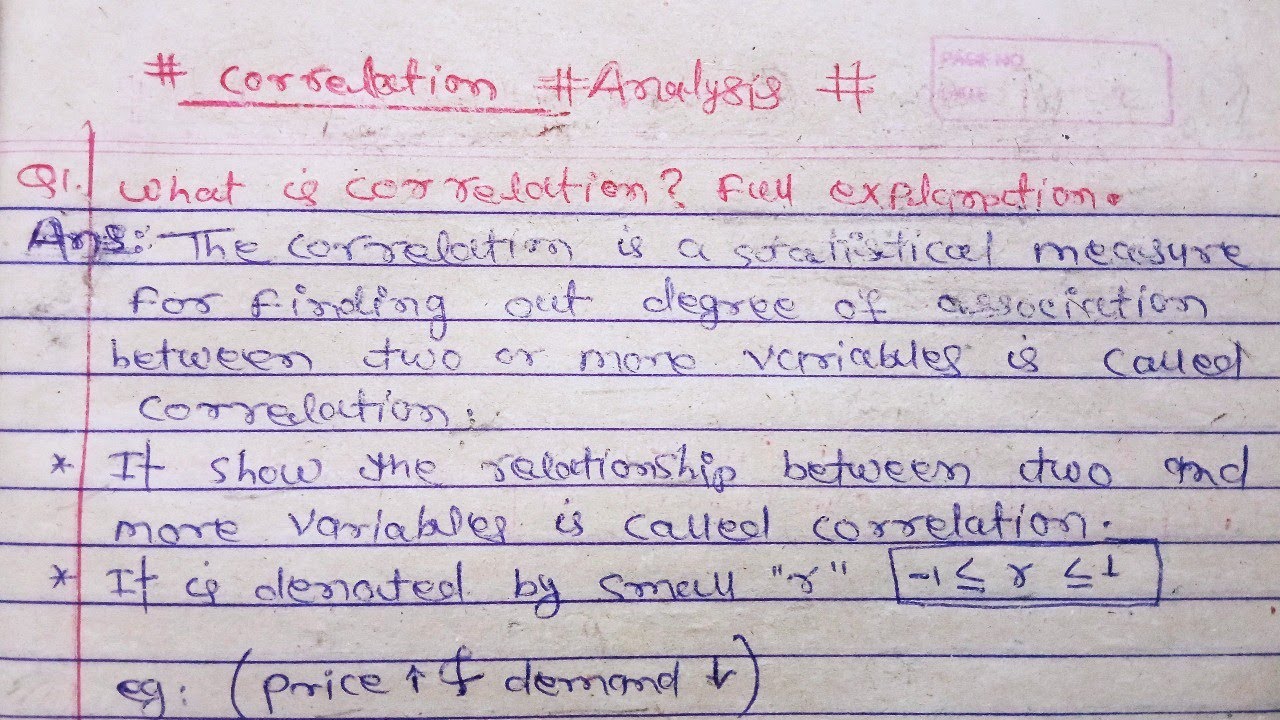 # correlation # Analysis #
PAGE NO.
DATE
Q1. what is correlation? Full explanation.
Ans: The correlation is a statistical measure
for finding out degree of association
between two or more variables is called
correlation.
* It show the relationship between two and
more variables is called correlation.
* It is denoted by small "r" -1 ≤ r ≤ 1
eg: (price ↑ & demand ↓)